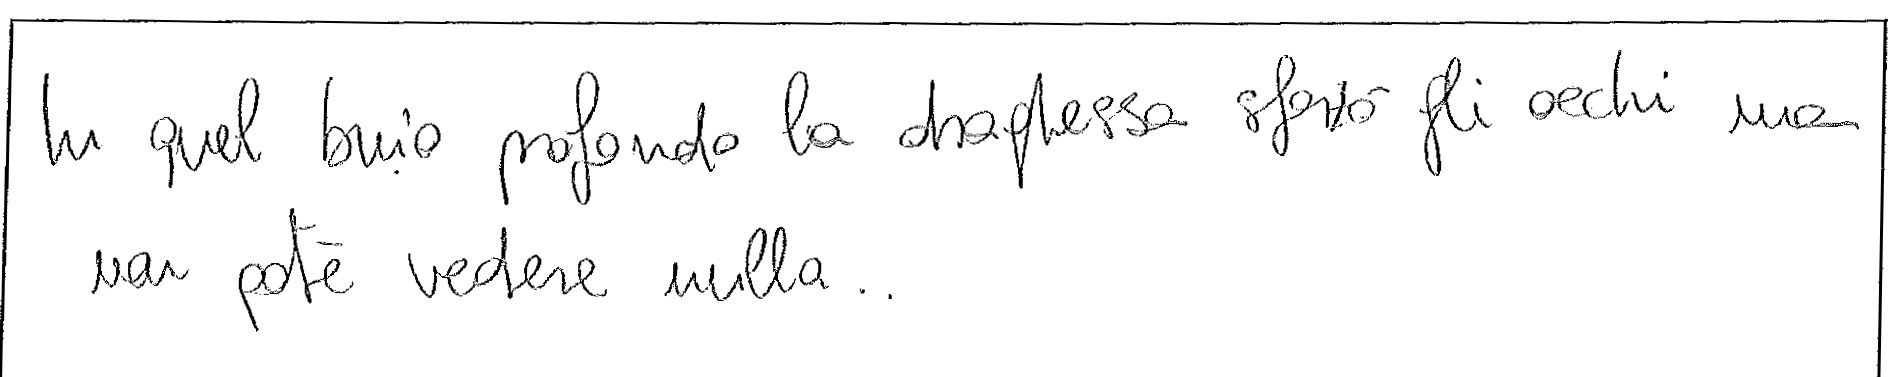 In quel buio profondo la draghessa sforzò gli occhi ma
non potè vedere nulla..